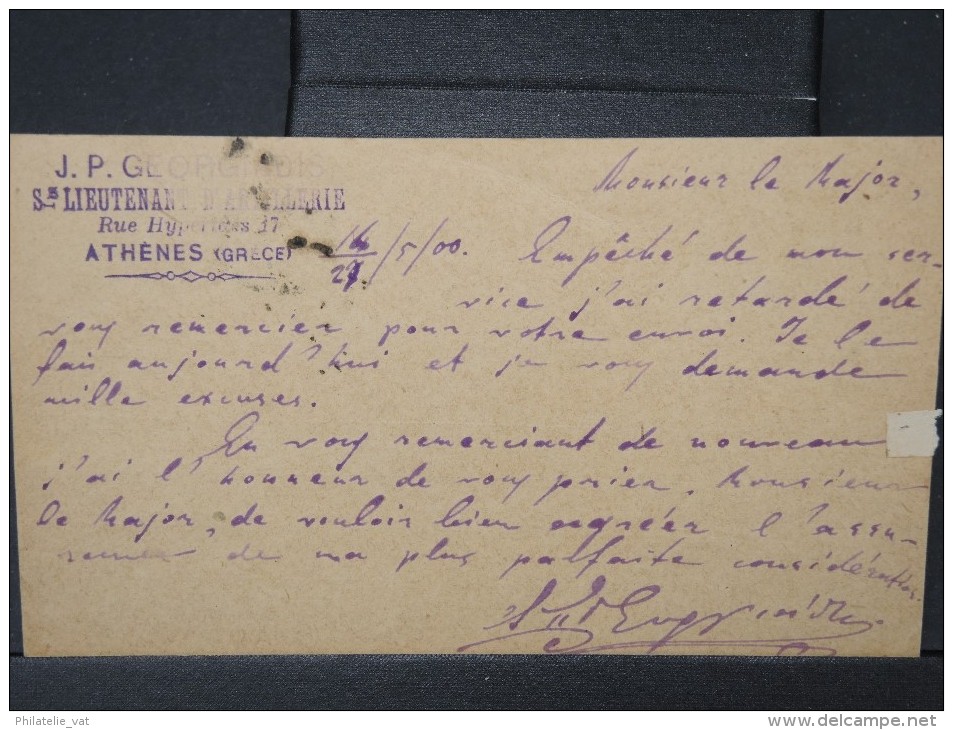 J. P. GEORGIADIS
S^us LIEUTENANT D'ARTILLERIE
Rue Hyperides 17
ATHÈNES (GRÈCE)
Monsieur le Major,
14/27/5/00. Empêché de mon ser-
vice j'ai retardé de
vous remercier pour votre envoi. Je le
fais aujourd'hui et je vous demande
mille excuses.
En vous remerciant de nouveau
j'ai l'honneur de vous prier, Monsieur
le Major, de vouloir bien agréer l'assu-
rance de ma plus parfaite considération.
Philatelie_vat
www.delcampe.net